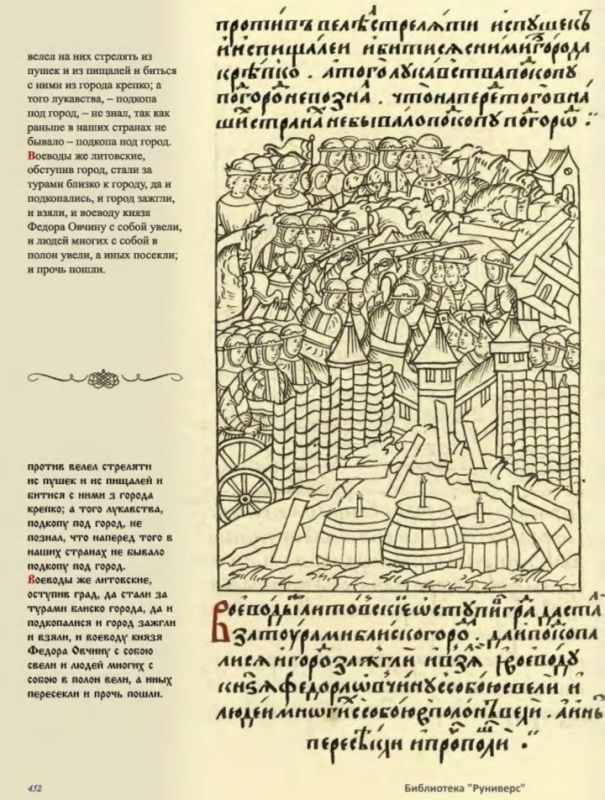 велел на них стрелять из
пушек и из пищалей и биться
с ними из города крепко; а
того лукавства, – подкопа
под город, – не знал, так как
раньше в наших странах не
бывало – подкопа под город.
Воеводы же литовские,
обступив город, стали за
турами близко к городу, да и
подкопались, и город зажгли,
и взяли, и воеводу князя
Федора Овчину с собой увели,
и людей многих с собой в
полон увели, а иных посекли;
и прочь пошли.
против велел стреляти
ис пушек и ис пищалей и
битися с ними з города
крепко; а того лукавства,
подкопу под город, не
познал, что наперед того в
наших странах не бывало
подкопу под город.
Воеводы же литовские,
оступив град, да стали за
турами блиско города, да и
подкопалися и город зажгли
и взяли, и воеводу князя
Федора Овчину с собою
свели и людей многих с
собою в полон вели, а иных
пересекли и прочь пошли.
противъ велѣ стреляти испушекъ
и испищалеи ибитисѧ сними згорода
крѣпко . атого лукавства покопу
погоро непозна . что наперетого вна
ши страна небывало покопу погоро
Воеводы литовские ѡступи гра даста
затоурами блиско горо . даи покопа
лися и горо зажгли ивзя воеводу
кнѕѧ федора ѡвчину ссобою свели и
людеи многи ссобою вполонъ вели . аины
пересекли и про поли
452
Библиотека "Руниверс"